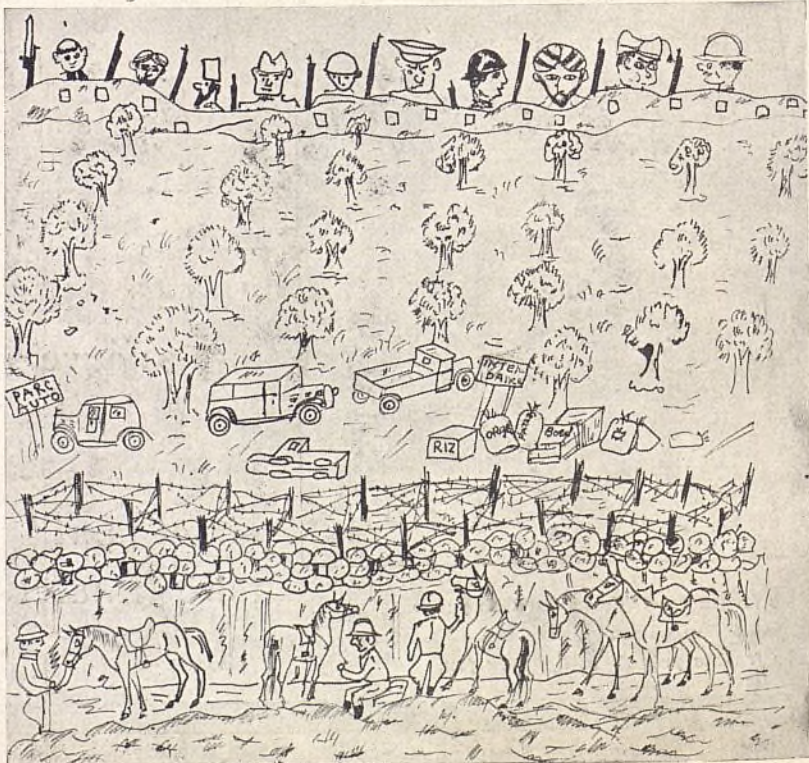 PARC
AUTO
INTEN-
DANCE
RIZ
ORGE